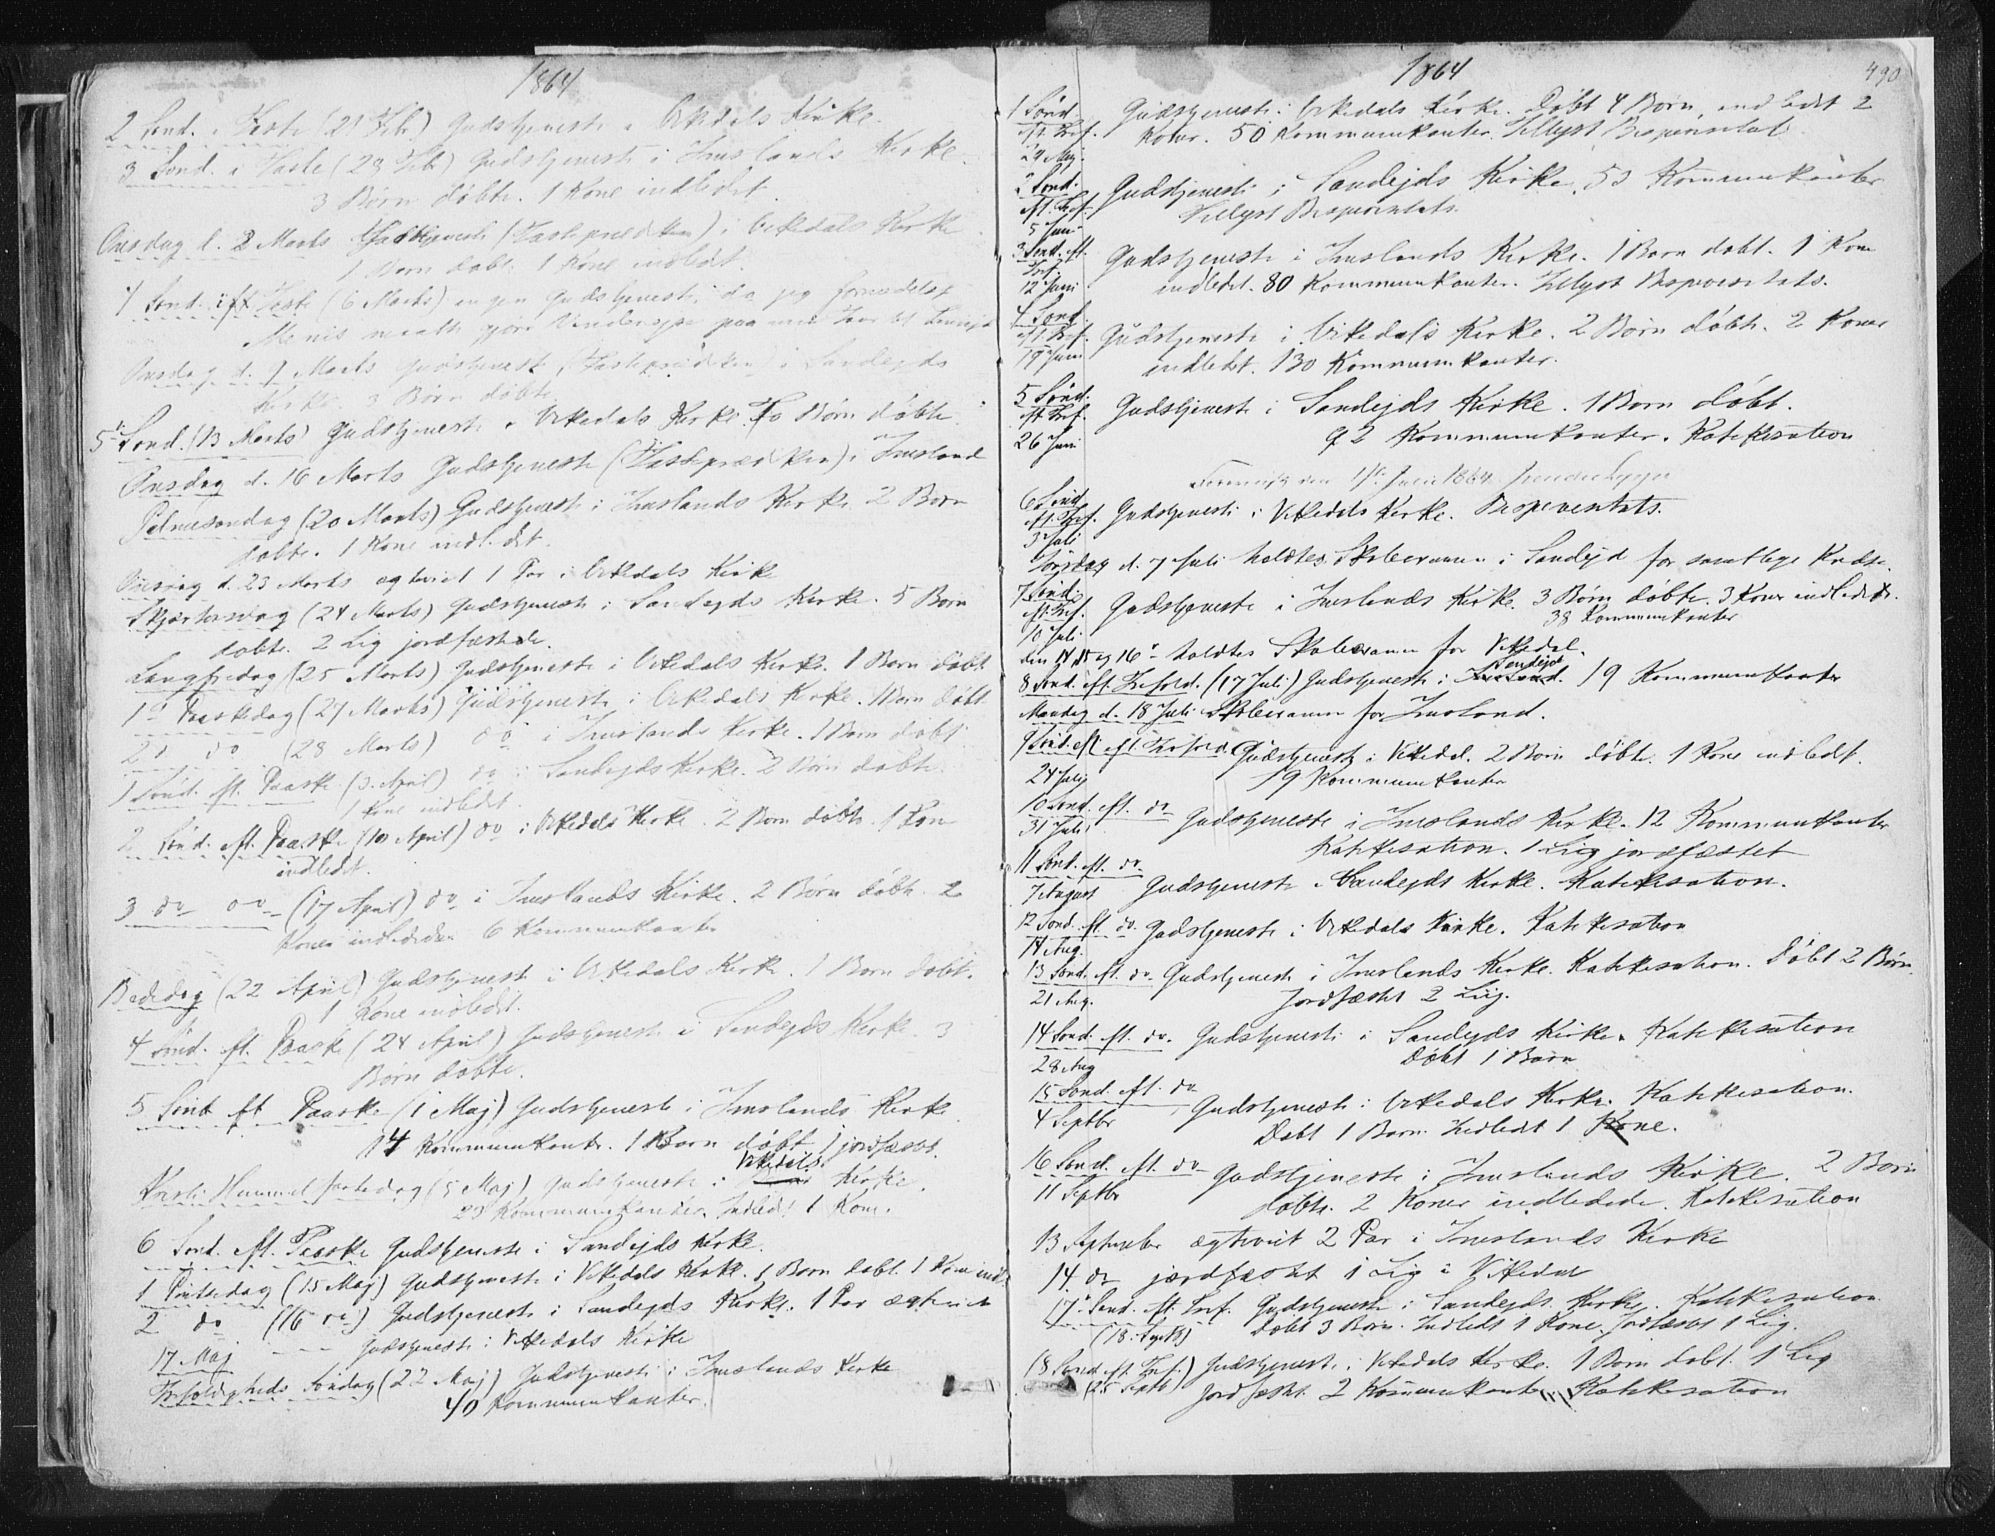 1864
2 Sønd. i Faste (21 Febr) Gudstjeneste i Vikedals Kirke.
3 Sønd. i Faste (28 Feb) Gudstjeneste i Imslands Kirke.
3 Børn døbte. 1 Kone indledet.
Onsdag d. 2 Marts Gudstjeneste (Fasteprædiken) i Vikedals Kirke
1 Barn døbt. 1 Kone indledt.
4 Sønd. i Faste (6 Marts) ingen Gudstjeneste, da jeg formedelst
Menis maatte gjøre Vendereise paa
Onsdag d. 9 Marts Gudstjeneste (Fasteprædiken) i Sandejds
Kirke 3 Børn døbte
5 Sønd. (13 Marts) Gudstjeneste i Vikedals Kirke. To Børn døbte.
Onsdag d. 16 Marts Gudstjeneste (Fasteprædiken) i Imsland
Palmesøndag (20 Marts) Gudstjenest i Imslands Kirke 2 Børn
døbte. 1 Kone indledet.
Onsdag d. 23 Marts egteviet 1 Par i Vikedals Kirke
Skjærtorsdag (24 Marts) Gudstjeneste i Sandejds Kirke. 5 Børn
døbte. 2 Lig jordfæstede.
Langfredag (25 Marts) Gudstjeneste i Vikedals Kirke. 1 Barn døbt
1ste Paaskedag (27 Marts) Gudstjeneste i Vikedals Kirke. 1 Barn døbt
2 do (28 Marts) do i Imslands Kirke. 1 Barn døbt
1 Sønd. eft. Paaske (3. April) do i Sandejds Kirke. 2 Børn døbte.
1 Kone indledet.
2 Sønd. eft. Paaske (10 April) do i Vikedals Kirke. 2 Børn døbte. 1 Kone
indledet.
3 do do (17 April) do i Imslands Kirke. 2 Børn døbte. 2
Koner indledede. 6 Kommunikanter
Bededag (22 April) Gudstjenest i Vikedals Kirke. 1 Barn døbt.
1 Kone indledt.
4 Sønd. eft. Paaske (24 April) Gudstjeneste i Sandejds Kirke 3
Børn døbte.
5 Sønd eft Paaske (1 Maj) Gudstjeneste i Imslands Kirke
14 Kommunikanter. 1 Barn døbt 1 jordfæstet.
Vikedals
Kristi Himmelfartsdag (5 Maj) Gudstjeneste i Kirke.
29 Kommunikanter. Indledt 1 Kone.
6 Sønd. eft. Paaske Gudstjeneste i Sandejds Kirke.
1 Pintsedag (15 Maj) Gudstjeneste i Vikedals Kirke. 1 Barn døbt 1 Kone indl.
2 do (16 do) Gudstjeneste i Sandejds Kirke. 1 Par ægteviet
17 Maj Gudstjeneste i Vikedals Kirke
Trefoldigheds Søndag (22 Maj) Gudstjeneste i Imslands Kirke
40 Kommunikanter.
1864
490
1 Sønd. Gudstjeneste i Vikedals Kirke. Døbt 4 Børn, indledet 2
eft. Tref. Koner. 50 Kommunikanter. Tillyst Bispevisitats
29 Maj.
2 Sønd. Gudstjeneste i Sandejds Kirke. 53 Kommunikanter
eft. Tref. Tillyst Bispevisitats.
5 Juni
3 Sønd. eft. Gudstjeneste i Imslands Kirke. 1 Barn døbt. 1 Kone
Tref.
12 Juni indledet. 80 Kommunikanter. Tillyst Bispevisitats.
4 Sønd.
eft. Tref. Gudstjeneste i Vikedals Kirke. 2 Børn døbte. 2 Koner
19 Juni indledet. 130 Kommunikanter.
5 Sønd.
eft. Tref. Gudstjeneste i Sandejds Kirke. 1 Barn døbt.
26 Juni 92 Kommunikanter. Katekisation
1ste Juli 1864
6 Sønd
eft. Tref. Gudstjeneste i Vikedals Kirke. Bispevisitats.
3 Juli
Torsdag d. 7 Juli holdtes Skoleexamen i Sandejd for samtlige Kredse.
7 Sønd.
eft. Tref. Gudstjeneste i Imslands Kirke. 3 Børn døbte. 3 Koner indledede.
10 Juli 38 Kommunikanter
den 14, 15 og 16de holdtes Skoleexamen for Vikedal.
Sandejd
8 Sønd. eft. Trefold. (17 Juli) Gudstjeneste i Imsland. 19 Kommunikanter
Mandag d. 18 Juli Skoleexamen for Imsland.
9 Sønd. eft Trefold. Gudstjeneste i Vikedal. 2 Børn døbte. 1 Kone indledt.
24 Juli 19 Kommunikanter
10 Sønd. eft. do Gudstjeneste i Imslands Kirke. 12 Kommunikanter
31 Juli Katekisation. 1 Lig jordfæstet
11 Sønd. eft. do
7 August Gudstjeneste i Sandejds Kirke. Katekisation.
12 Sønd. eft. do Gudstjeneste i Vikedals Kirke. Katekisation
14 Aug.
13 Sønd. eft. do Gudstjeneste i Imslands Kirke. Katekisation. Døbt 2 Børn.
21 Aug. Jordfæstet 2 Lig.
14 Sønd. eft. do. Gudstjeneste i Sandejds Kirke. Katekisation
28 Aug Døbt 1 Barn
15 Sønd. eft. do Gudstjeneste i Vikedals Kirke. Katekisation.
4 Septbr Døbt 1 Barn. Indledt 1 Kone.
16 Sønd. eft. do Gudstjeneste i Imslands Kirke. 2 Børn
11 Septbr døbte. 2 Koner indledede. Katekisation
13 September ægteviet 2 Par i Imslands Kirke
14 do jordfæstet 1 Lig i Vikedal
17de Sønd. eft. Tref. Gudstjeneste i Sandejds Kirke. Katekisation.
(18. Septb) Døbt 3 Børn. Indledt 1 Kone. Jordfæstet 1 Lig.
18 Sønd. eft Tref.) Gudstjeneste i Vikedals Kirke. 1 Barn døbt. 1 Lig
(25 Septb) jordfæstet. 2 Kommunikanter. Katekisation